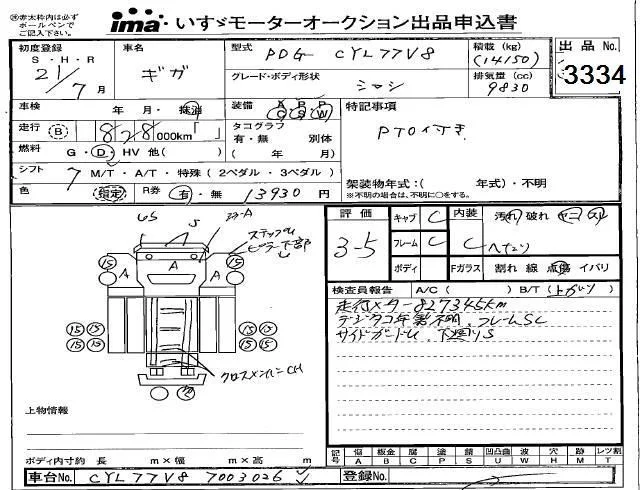 ※赤太枠内は必ず
ボールペンで
ご記入下さい。
ima いすゞモーターオークション出品申込書
初度登録
S・H・R
21/7月
車名
ギガ
型式
PDG - CYL77V8
積載(kg)
(14150)
グレード・ボディ形状
シャシ
排気量(cc)
9830
出品No.
3334
車検 年・月・抹消
装備 A C P S P W
特記事項
PTO付き
走行 B 828,000km「 」
タコグラフ
有・無 別体
( 年 月)
燃料 G・D・HV 他( )
シフト 7 M/T・A/T・特殊(2ペダル・3ペダル)
色 (指定) R券 有・無 13930 円
架装物年式:( 年式)・不明
※不明の場合は、不明に○をする。
評価
3-5
キャブ C
フレーム C
ボディ
内装 C
汚れ 破れ ヤニ スレ
ヘタリ
Fガラス 割れ 線 点傷 イバリ
検査員報告 A/C( ) B/T(上がり)
走行メーター827345km
デジタコ年製不明、フレームSC
サイドガードU、下廻りS
US S フロ-A
ステップU
ピラー下部U
15 15
A A A A
15 15 15 15
15 15 15 15
クロスメンバーCH
上物情報
ボディ内寸約 長 m×幅 m×高 m
記号 傷 A 板金 B 腐 C 塗 P 錆 S 凹凸曲 U 波 W 穴 H 跡 M レツ割 T
車台No. CYL77V8 7003026
登録No.